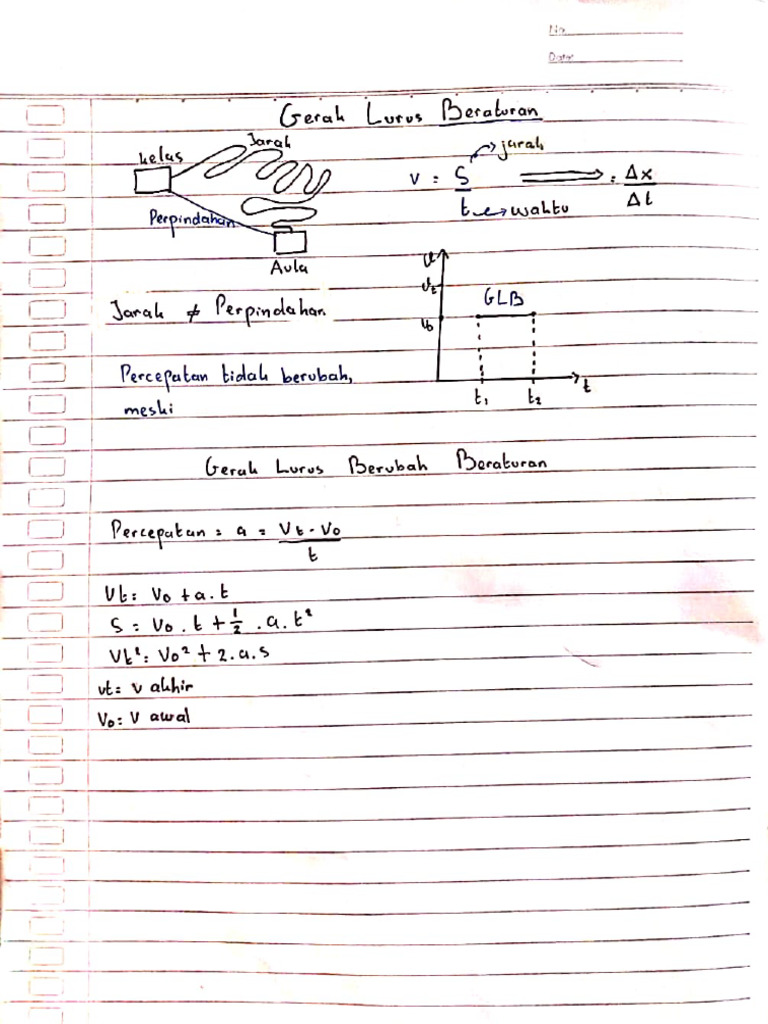 No
Date
Gerak Lurus Beraturan
Jarak
kelas
Perpindahan
Aula
v = S/t → jarak
t → waktu
= Δx/Δt
v
vt
v0
GLB
t1 t2 t
Jarak ≠ Perpindahan
Percepatan tidak berubah,
meski
Gerak Lurus Berubah Beraturan
Percepatan = a = Vt - Vo / t
Vt = Vo + a.t
S = Vo . t + 1/2 . a . t²
Vt² = Vo² + 2.a.s
vt = v akhir
Vo = V awal